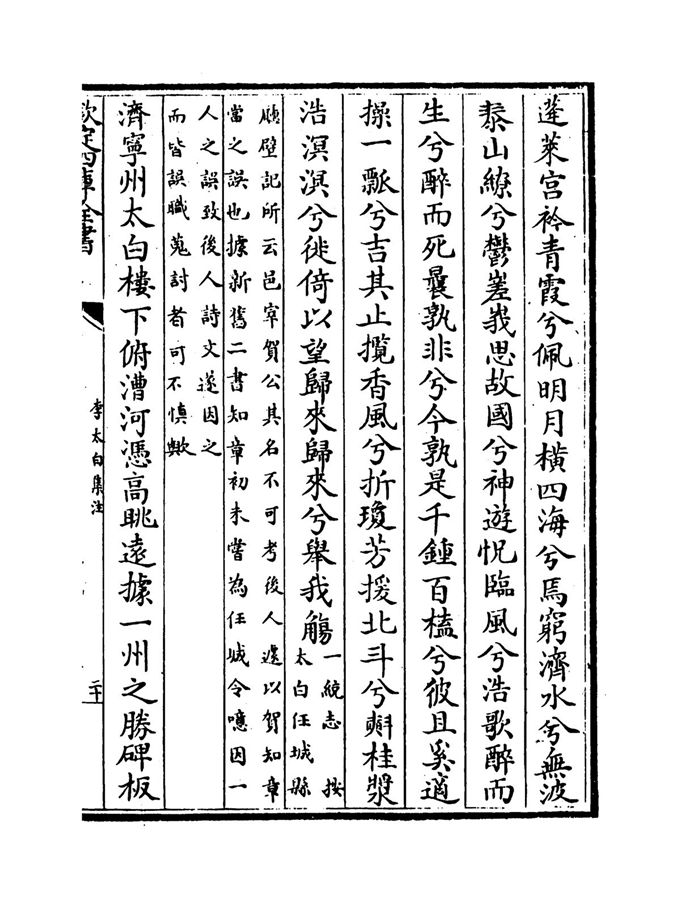 蓬萊宮衿青霞兮佩明月橫四海兮焉窮濟水兮無波
泰山繚兮鬱嵳峩思故國兮神遊怳臨風兮浩歌醉而
生兮醉而死曩孰非兮今孰是千鍾百榼兮彼且奚適
操一瓢兮吉其止攬香風兮折瓊芳援北斗兮㪺桂漿
浩溟溟兮徙倚以望歸來歸來兮舉我觴
一統志　按
太白任城縣
㕔壁記所云邑宰賀公其名不可考後人遽以賀知章
當之誤也據新舊二書知章初未嘗為任城令噫因一
人之誤致後人詩文遂因之
而皆誤職蒐討者可不慎歟
濟寧州太白樓下俯漕河憑高眺遠據一州之勝碑板
欽定四庫全書
李太白集注
二十